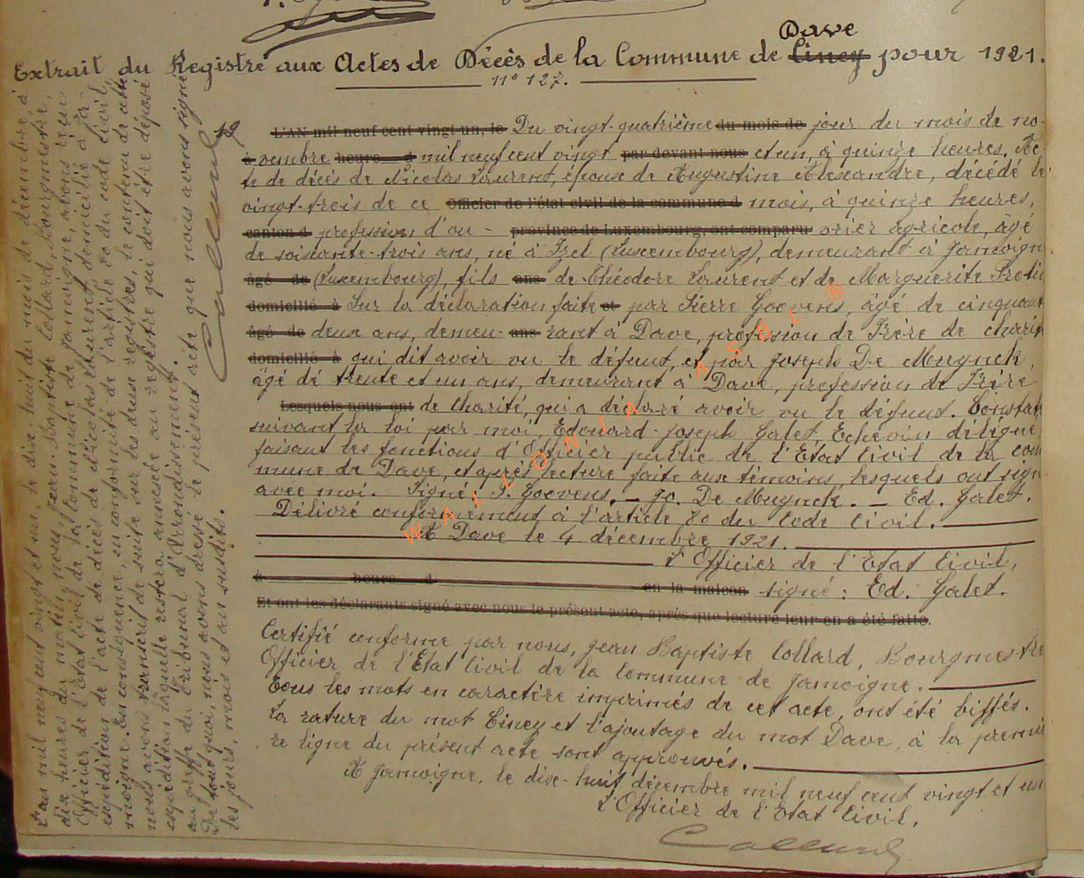 Dave
Extrait du Registre aux Actes de Décès de la Commune de Ciney pour 1921.
n° 127.
L'AN mil neuf cent vingt-un, le Du vingt-quatrième du mois de jour du mois de no-
à vembre heure d mil neuf cent vingt par devant nous et un, à quinze heures, Ac-
te de décès de Nicolas Laurent, époux de Augustine Alexandre, décédé le
vingt-trois de ce Officier de l'état civil de la commune d mois, à quinze heures,
canton d profession d'ou- province de Luxembourg, ont comparu vrier agricole, âgé
de soixante-trois ans, né à Izel (Luxembourg), demeurant à Jamoign
âgé de (Luxembourg), fils ans de Théodore Laurent et de Marguerite
domicilié à Sur la déclaration faite et par Pierre Goevens, âgé de cinquant
âgé de deux ans, demeu- ans rant à Dave, profession de Frère de charit
domicilié à qui dit avoir vu le défunt, et par Joseph De Muynck,
âgé de trente et un ans, demeurant à Dave, profession de Frère
Lesquels nous ont de Charité, qui a déclaré avoir vu le défunt. Constat
suivant la loi par moi Edouard-Joseph Galet Echevin délégué
faisant les fonctions d'Officier public de l'Etat Civil de la com
mune de Dave, et après lecture faite aux témoins, lesquels ont sign
avec moi. Signé P. Goevens. — Jo. De Muynck. — Ed. Galet.
Délivré conformément à l'article 80 du Code Civil.
A Dave le 4 décembre 1921.
L'Officier de l'Etat Civil,
à heure d en la maison signé: Ed. Galet.
Et ont les déclarants signé avec nous le présent acte, après que lecture leur en a été faite.
Certifié conforme par nous, Jean Baptiste Collard, Bourgmestre
Officier de l'Etat Civil de la Commune de Jamoigne.
Tous les mots en caractère imprimés de cet acte, ont été biffés.
La rature du mot Ciney et l'ajoutage du mot Dave, à la premiè
re ligne du présent acte sont approuvés.
A Jamoigne, le dix-huit décembre mil neuf cent vingt et un
L'Officier de l'Etat Civil.
Collard
L'an mil neuf cent vingt et un, le dix huit du mois de décembre à
dix heures du matin, nous, Jean-Baptiste Collard, Bourgmestre,
Officier de l'Etat Civil de la Commune de Jamoigne, avons reçu
expédition de l'acte de décès de Nicolas Laurent, domicilié à Ja-
moigne. En conséquence, en conformité de l'article 80 du code civil,
nous avons transcrit de suite sur les deux registres, le contenu de cette
expédition laquelle restera annexée au registre qui doit être déposé
au greffe du tribunal d'Arrondissement.
De tout quoi, nous avons dressé le présent acte que nous avons signé
les jours, mois et an susdits.
Collard
WALLONIA ASBL ®